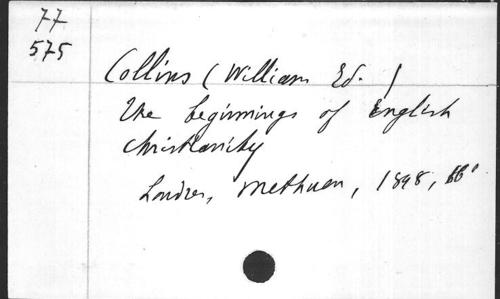 77
575
Collins (William Ed.)
The beginnings of English
christianity
Londres, Methuen, 1898,